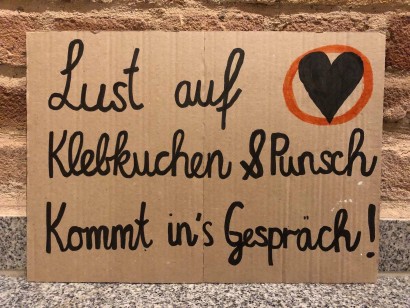 Lust auf
Klebkuchen & Punsch
Kommt in's Gespräch!